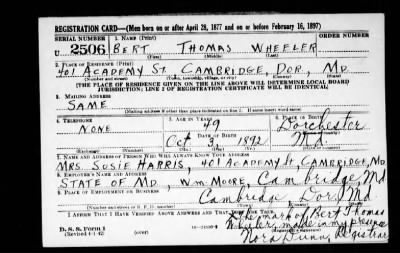 REGISTRATION CARD—(Men born on or after April 28, 1877 and on or before February 16, 1897)
SERIAL NUMBER 1. NAME (Print) ORDER NUMBER
U 2506 BERT THOMAS WHEELER
(First) (Middle) (Last)
2. PLACE OF RESIDENCE (Print)
401 ACADEMY ST. CAMBRIDGE, DOR, MD
(Number and street) (Town, township, village, or city) (County) (State)
[THE PLACE OF RESIDENCE GIVEN ON THE LINE ABOVE WILL DETERMINE LOCAL BOARD
JURISDICTION; LINE 2 OF REGISTRATION CERTIFICATE WILL BE IDENTICAL]
3. MAILING ADDRESS
SAME
[Mailing address if other than place indicated on line 2. If same insert word same]
4. TELEPHONE 5. AGE IN YEARS 6. PLACE OF BIRTH
NONE 49 Dorchester
DATE OF BIRTH
Oct 3 1892 Md
(Exchange) (Number) (Mo.) (Day) (Yr.) (State or country)
7. NAME AND ADDRESS OF PERSON WHO WILL ALWAYS KNOW YOUR ADDRESS
MRS. SUSIE HARRIS, 401 ACADEMY St, CAMBRIDGE, MD
8. EMPLOYER'S NAME AND ADDRESS
STATE OF MD, WM. MOORE, Cambridge Md
9. PLACE OF EMPLOYMENT OR BUSINESS
Cambridge Dor. Md
(Number and street or R. F. D. number) (Town) (County) (State)
I AFFIRM THAT I HAVE VERIFIED ABOVE ANSWERS AND THAT THEY ARE TRUE.
The mark of Bert Thomas
D. S. S. Form 1 Wheeler, made in my presence
(Revised 4-1-42) (over) Nora Dunn, Registrar